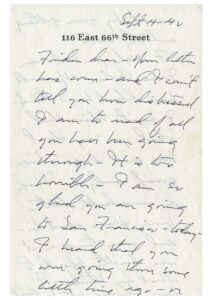 Sept 14-40
116 East 66th Street
Frieda dear - Your letter
has come - and I can't
tell you how distressed
I am to read of all
you have been going
through - It is too
horrible - I am so
glad you are going
to San Francisco - today -
I heard that you
were going there some
little time ago - or